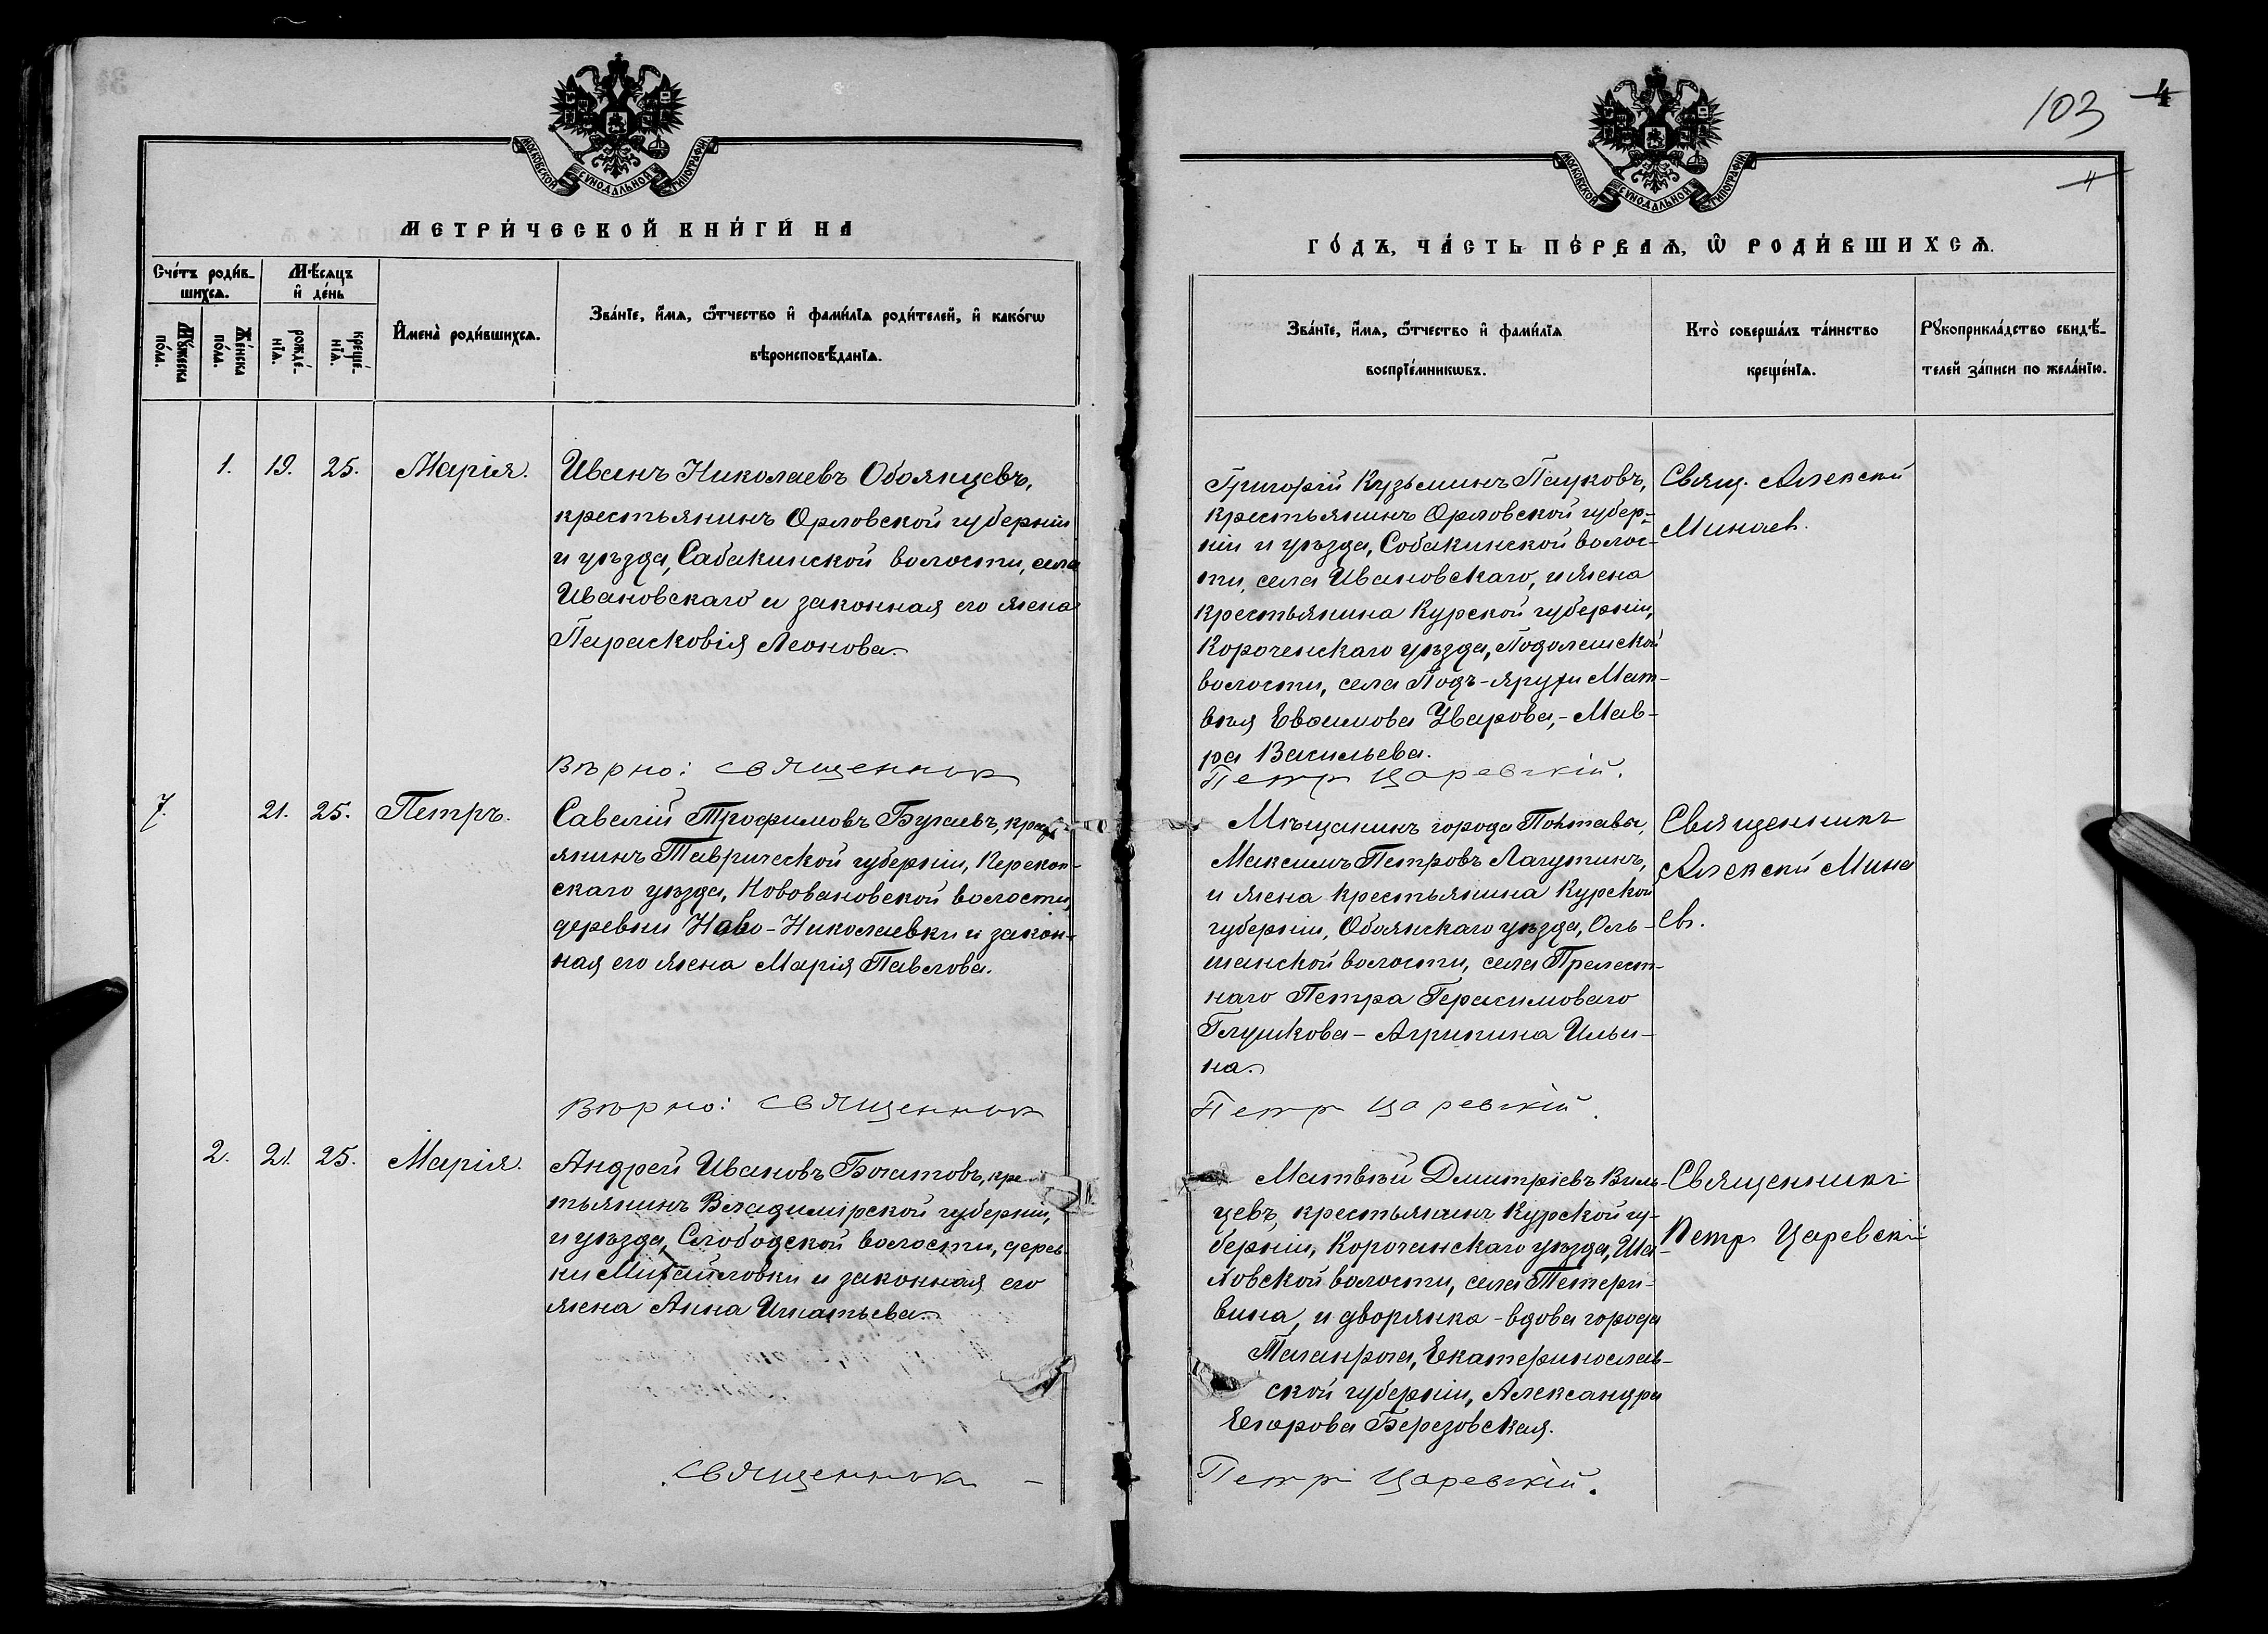 103 4
4
МОСКОВСКОЙ СѴНОДАЛЬНОЙ ТИПОГРАФІИ
МЕТРИ́ЧЕСКОЙ КНИ́ГИ НА
Сче́тъ роди́в-
шихсѧ.
Мѣ́сѧцъ
и҆ де́нь
Мꙋ́жеска
по́ла.
Же́нска
по́ла.
рожде́-
нїѧ.
креще́-
нїѧ.
И҆мена̀ роди́вшихсѧ.
Зва́нїе, и҆́мѧ, ѻ҆́тчество и҆ фами́лїѧ роди́телей, и҆ како́гѡ
вѣроисповѣ́данїѧ.
1. 19. 25. Марія.
Иванъ Николаевъ Обоянцевъ,
крестьянинъ Орловской губерніи
и уѣзда, Сабакинской волости, села
Ивановскаго и законная его жена
Парасковія Леонова.
Вѣрно: священник
7. 21. 25. Петръ.
Савелій Трофимовъ Бугаевъ, крес
янинъ Таврической губерніи, Перекоп-
скаго уѣзда, Новоивановской волости,
деревни Ново-Николаевки и закон-
ная его жена Марія Павлова.
Вѣрно: священник
2. 21. 25. Марія.
Андрей Ивановъ Богатовъ, кре
тьянинъ Владимірской губерніи,
и уѣзда, Слободской волости, дерев
ни Михайловки и законная его
жена Анна Игнатьева.
священник -
МОСКОВСКОЙ СѴНОДАЛЬНОЙ ТИПОГРАФІИ
ГО́ДЪ, ЧА́СТЬ ПЕ́РВАѦ, Ѡ҆ РОДИ́ВШИХСѦ.
Зва́нїе, и҆́мѧ, ѻ҆́тчество и҆ фами́лїѧ
воспрїе́мникѡвъ.
Кто̀ соверша́лъ та́инство
креще́нїѧ.
Рꙋкоприкла́дство свидѣ́-
телей за́писи по жела́нїю.
Григорій Кузьминъ Пауковъ,
крестьянинъ Орловской губер-
ніи и уѣзда, Собакинской волос-
ти, села Ивановскаго, и жена
крестьянина Курской губерніи,
Короченскаго уѣзда, Подолешской
волости, села Подъ-яруги Мат-
вѣя Евѳимова Уварова,- Мав-
ра Васильева.
Свящ. Алексій
Минаев.
Петр Царевскій.
Мѣщанинъ города Полтавы,
Максимъ Петровъ Лагутинъ,
и жена крестьянина Курской
губерніи, Обоянскаго уѣзда, Оль-
шанской волости, села Прелест-
наго Петра Герасимоваго
Глушкова - Агрипина Ильи-
на.
Священникъ
Алексій Мина
ев.
Петр Царевскій.
Матвѣй Дмитріевъ Виль-
цевъ, крестьянинъ Курской гу-
берніи, Корочанскаго уѣзда, Ша-
ховской волости, села Тетери-
вина, и дворянка - вдова города
Таганрога, Екатеринослав-
ской губерніи, Александра
Егорова Березовская.
Священникъ
Петр Царевскі
Петр Царевскій.